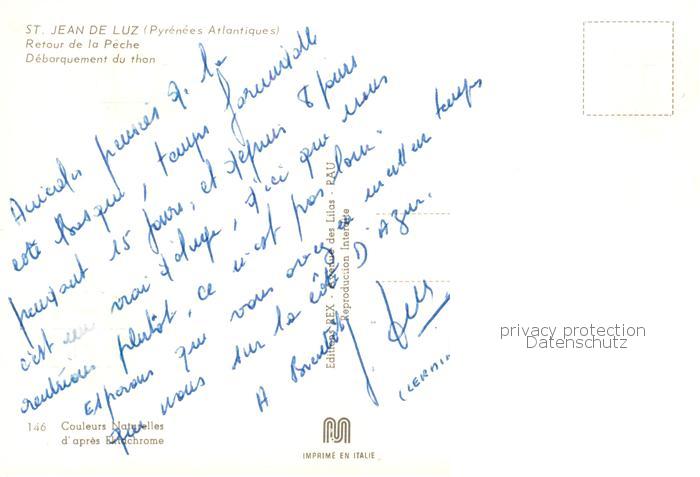 ST. JEAN DE LUZ (Pyrénées Atlantiques)
Retour de la Pêche
Débarquement du thon
Amicales pensées de la
côte Basque, temps formidable
pendant 15 jours, et depuis 8 jours
c'est un vrai déluge, d'ici que nous
rentrions plutôt, ce n'est pas loin.
Esperons que vous avez un meilleur temps
que nous sur la côte D'Azur.
A Bientôt
Editions REX - Avenue des Lilas - PAU
Reproduction Interdite
146 Couleurs Naturelles
d'après Ektachrome
IMPRIMÉ EN ITALIE
privacy protection
Datenschutz